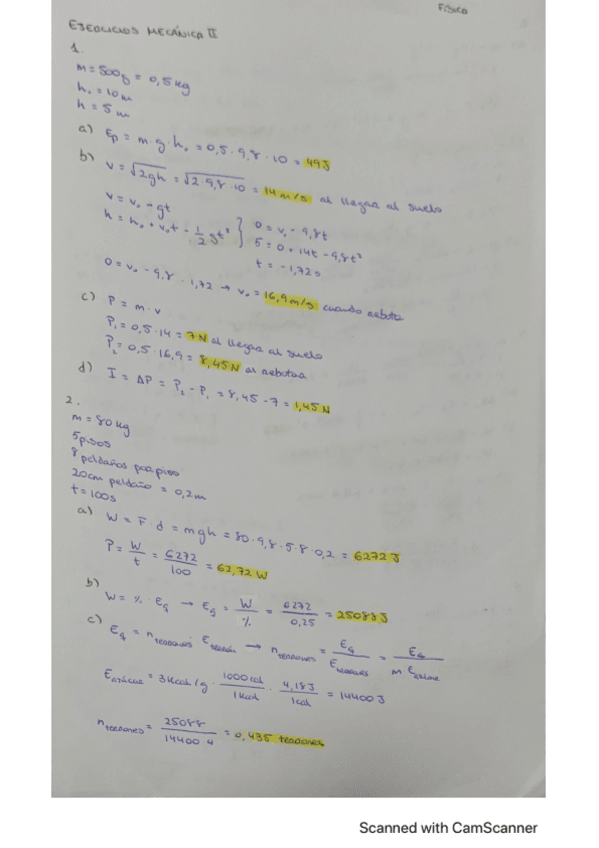 FÍSICA
EJERCICIOS MECÁNICA II
1.
m = 500g = 0,5 kg
h₀ = 10m
h = 5m
a) Ep = m · g · h₀ = 0,5 · 9,8 · 10 = 49J
b) v = √2gh = √2·9,8·10 = 14 m/s al llegar al suelo
v = v₀ - gt
h = h₀ + v₀t - 1/2 gt² } 0 = v₀ - 9,8t
5 = 0 + 14t - 9,8t²
t = -1,72s
0 = v₀ - 9,8 · 1,72 → v₀ = 16,9 m/s cuando rebota
c) P = m · v
P₁ = 0,5 · 14 = 7N al llegar al suelo
P₂ = 0,5 · 16,9 = 8,45N al rebotar
d) I = ΔP = P₂ - P₁ = 8,45 - 7 = 1,45 N
2.
m = 80 kg
5 pisos
8 peldaños por piso
20cm peldaño = 0,2m
t = 100s
a) W = F · d = mgh = 80 · 9,8 · 5 · 8 · 0,2 = 6272 J
P = W/t = 6272/100 = 62,72 W
b)
W = % · Eq → Eq = W/% = 6272/0,25 = 25088J
c) Eq = n terrones · E terrón → n terrones = Eq/E terrones = Eq/m E azúcar
E azúcar = 3Kcal/g · 1000cal/1Kcal · 4,18J/1cal = 14400J
n terrones = 25088/14400·4 = 0,435 terrones
Scanned with CamScanner